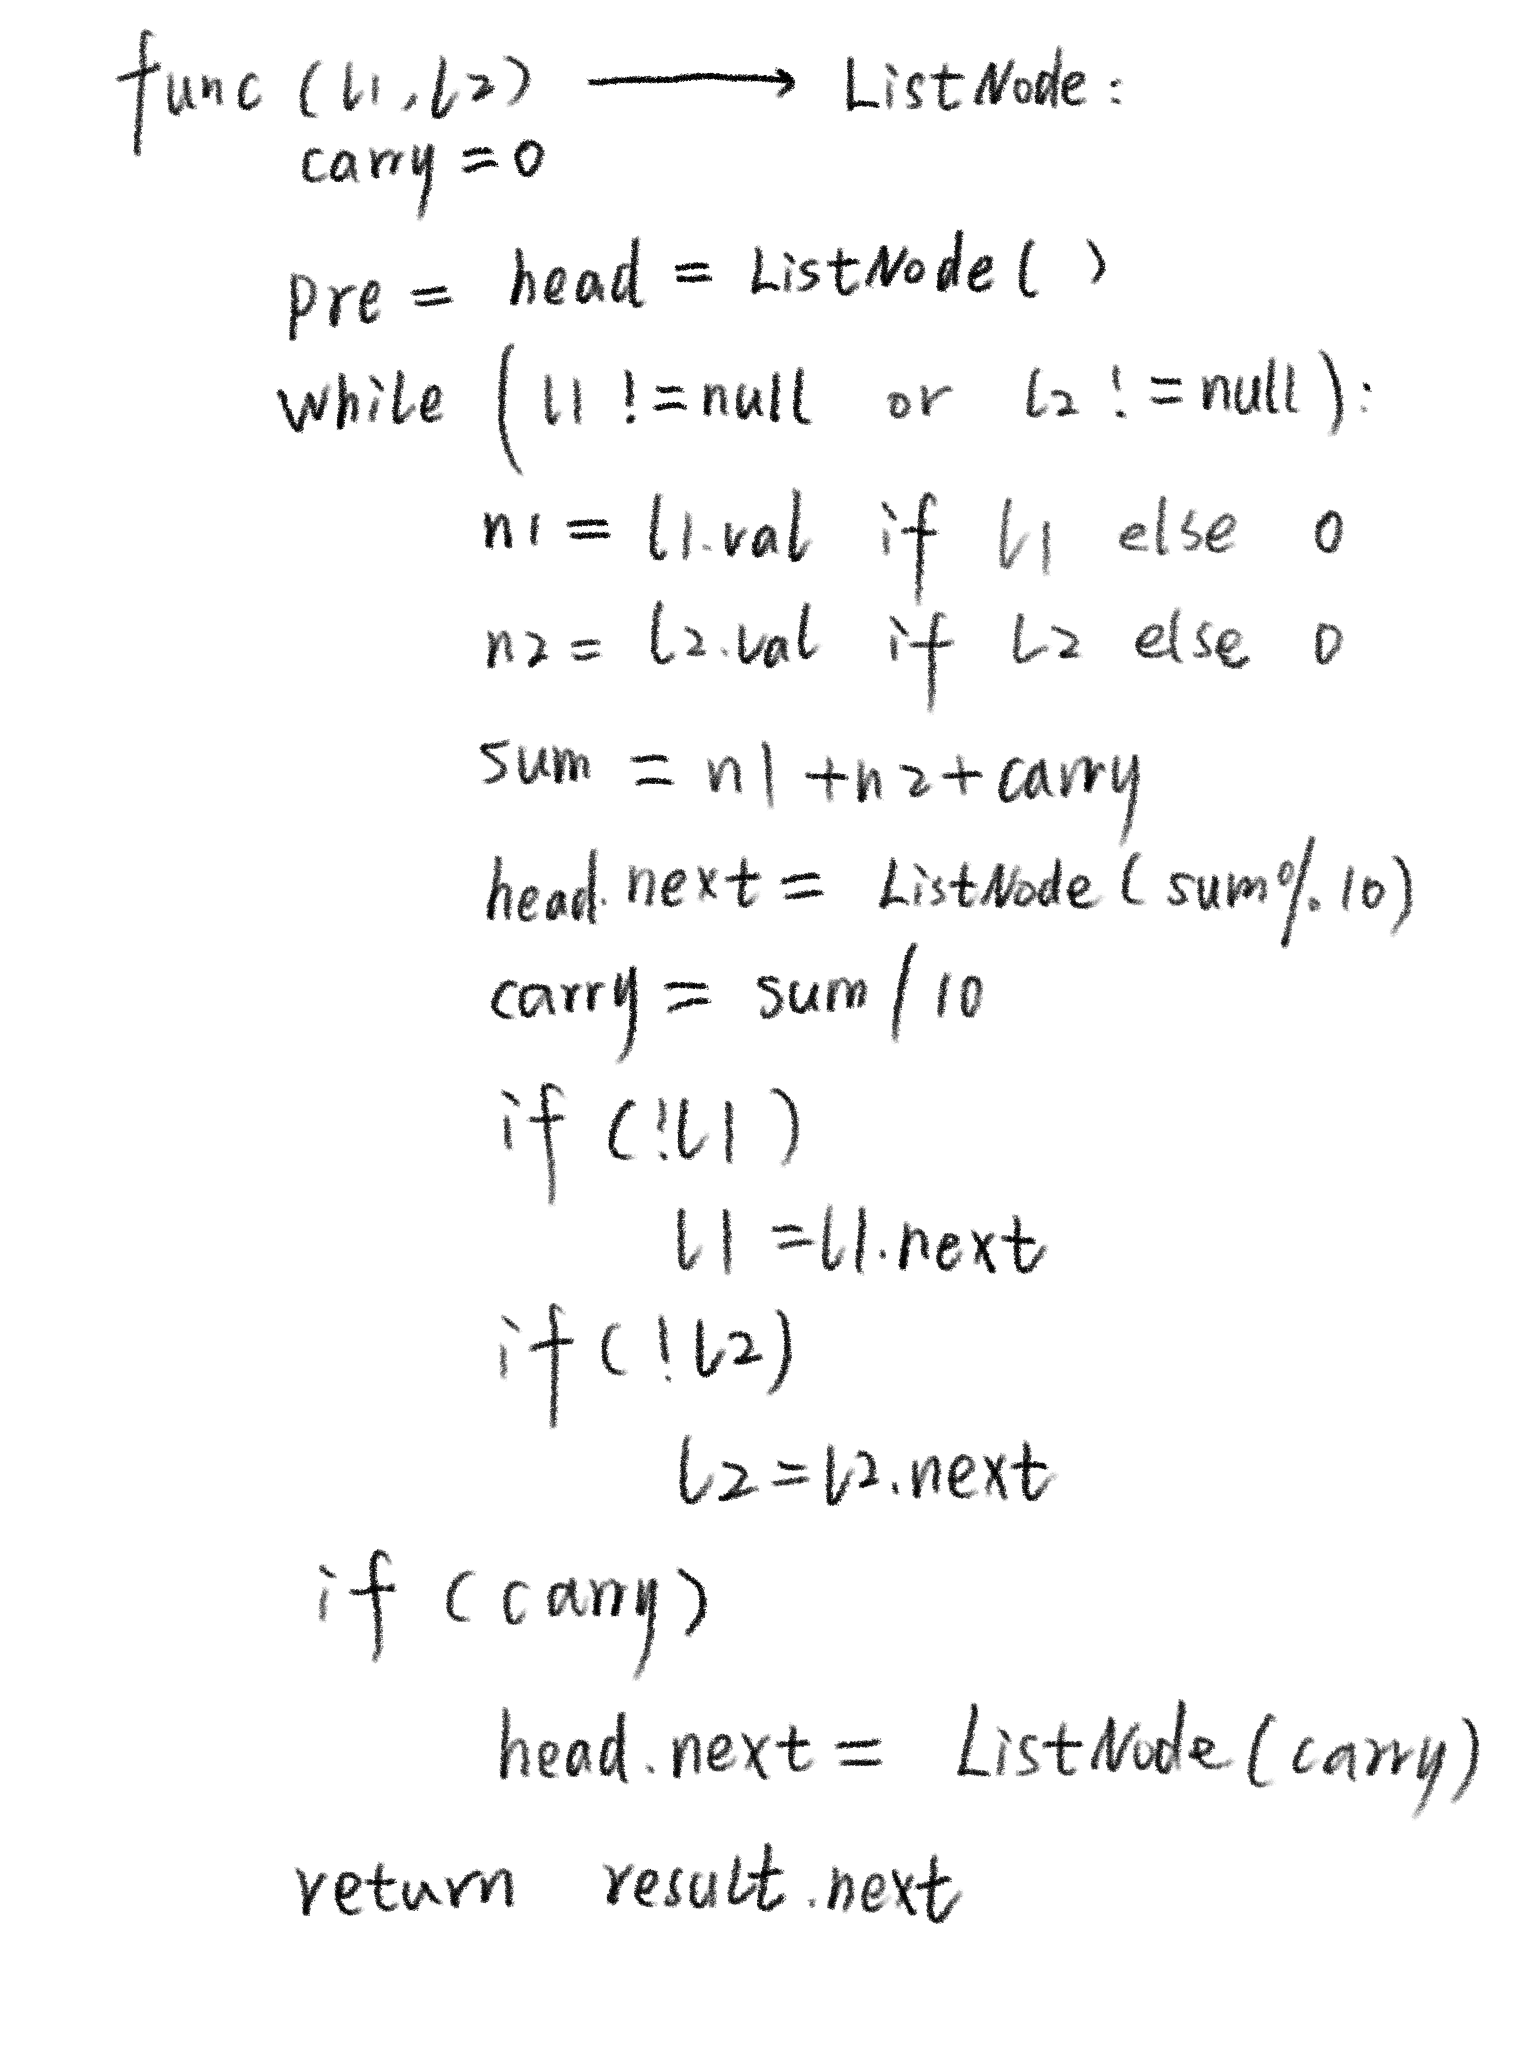 func (l1, l2) ⟶ ListNode:
carry = 0
pre = head = ListNode( )
while (l1 != null or l2 != null):
n1 = l1.val if l1 else 0
n2 = l2.val if l2 else 0
sum = n1 + n2 + carry
head.next = ListNode(sum%10)
carry = sum / 10
if (!l1)
l1 = l1.next
if (!l2)
l2 = l2.next
if (carry)
head.next = ListNode(carry)
return result.next